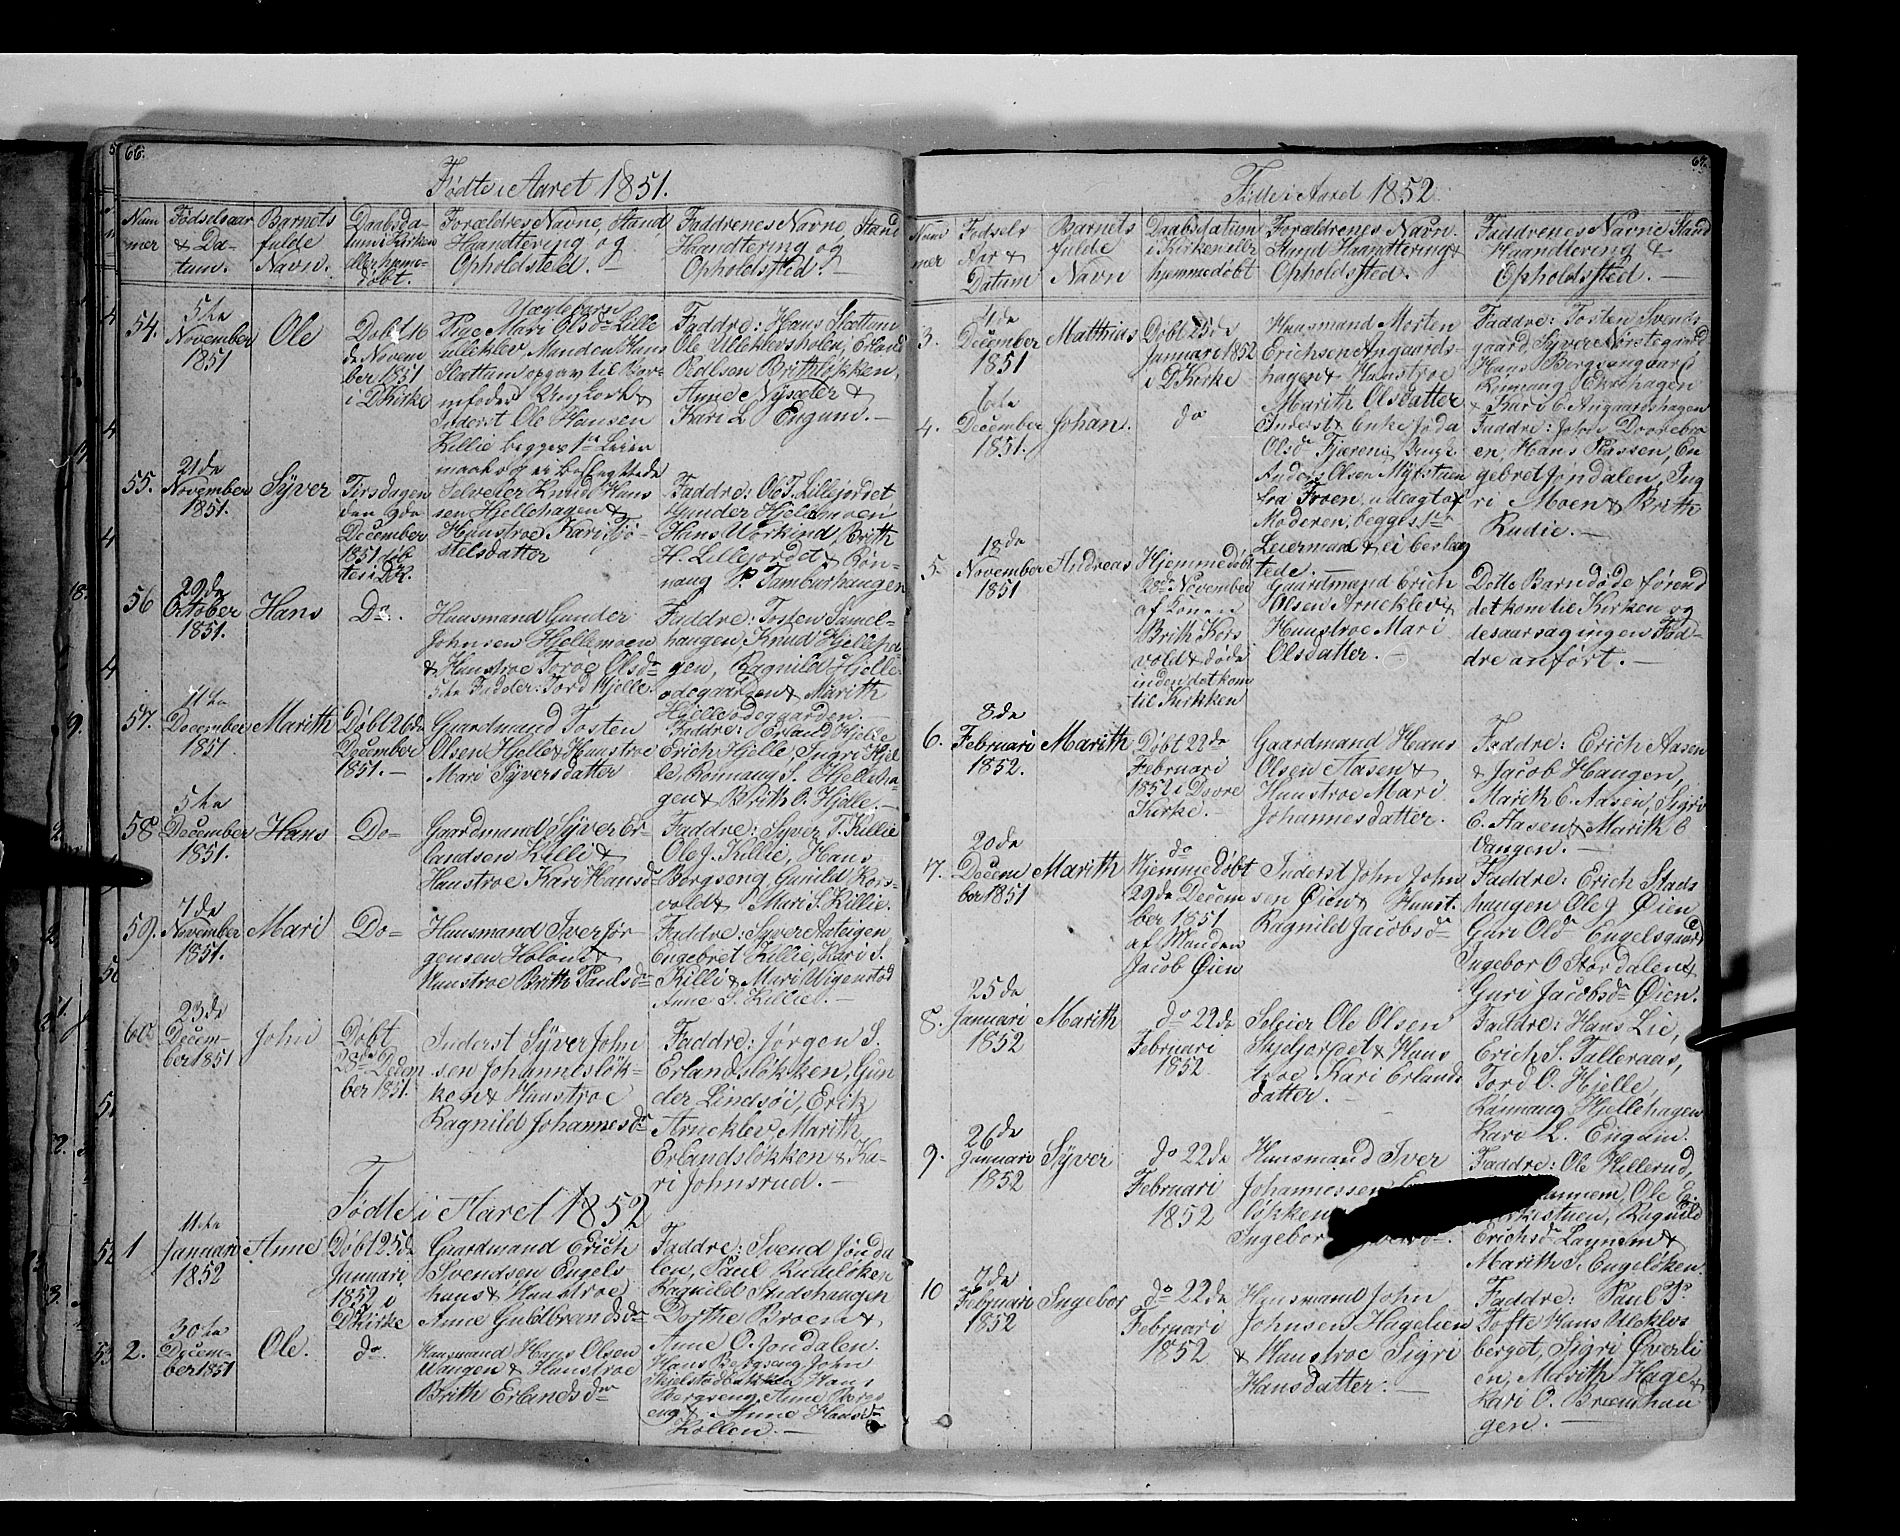 66.
Fødte i Aaret 1851.
Num
mer
Fødselsaar
& Da-
tum.
Barnets
fulde
Navn.
Daabsda-
tum i Kirken
eller hjeme-
døbt.
Forældres Navne, Stand
Haandtering og
Opholdsteld. -
Faddrenes Navne, Stand
Haandtering og
Opholdsted. -
54.
5te
November
1851
Ole
Døbt 16
de Novem
ber 1851
i D Kirke
Uægtebarn
Pige Mari Olsdr Lille
ulleklev, Manden Hans
Slettum opgav til Bar-
nefader Ungkarl &
Inderst Ole Hansen
Killie begges 1ste Leier
maal og ei beslægttede
Faddre: Hans Slettum
Ole Ulleklevsholen, Erland
Rolfsen Brithløkken,
Anne Nysæter &
Kari L Engum. -
55.
21de
November
1851.
Syver
Tirsdagen
den 9de
December
1851 døb
tes i DK.
Selveier Knud Hans
sen Hjellehagen &
Haustroe Kari Tjø-
stelsdatter
Faddre: Ole T. Lillejordet
Gunder Hjellemoen
Hans Workind, Brith
H. Lillejordet & Røn-
naug P. Tamburhaugen
56
29de
October
1851.
Hans
Do.
Huusmand Gunder
Johnsen Hjellemoen
& Haustroe Toroe Olsdr
5te Fadder: Tord Hjelle
Faddre: Tosten Samel-
haugen, Knud Hjelleha
gen, Ragnild Hjelle-
ødegaarden & Marith
Hjelleødegaarden. -
57.
11te
December
1851
Marith
Døbt 26de
December
1851. -
Gaardmand Tosten
Olsen Hjelle & Haustroe
Mari Syversdatter
Faddre: Erland Hjelle
Erich Hjelle, Ingri Hjel
le, Rønnaug S. Hjelleha-
gen & Brith O. Hjelle. -
58
5te
December
1851.
Hans
Do-
Gaardmand Syver Er-
landsen Killi &
Haustroe Kari Hansdr
Faddre: Syver T. Killie
Ole J. Killie, Hans
Bergseng, Gunild Kors-
vold & Mari S. Killie.
59.
7de
November
1851.
Mari
Do-
Huusmand Iver Jør-
gensen Holøne &
Haustroe Brith Paulsdr
Faddre: Syver Asteigen
Engebret Killie, Kari S.
Killi & Mari Wigenstad
Anne S. Killie. -
60.
23de
Decem-
ber 1851
John
Døbt
28de Decem
ber 1851.
Inderst Syver John
sen Johannesløk-
ken & Haustroe
Ragnild Johannesdr
Faddre: Jørgen S.
Erlandsløkken, Gun
der Lindsøi, Erik
Arneklev, Marith
Erlandsløkken & Ka-
ri Johnsrud. -
Fødte i Aaret 1852
1
11te
Januari
1852
Anne
Døbt 25de
Januari
1852 i
D Kirke
Gaardmand Erich
Svendsen Engels-
huus & Haustroe
Anne Guldbrandsdr
Faddre: Svend Jønda
len, Paul Rudiløken
Ragnild Stadshaugen
Dorthe Broen &
Anne O. Jondalen.
2.
30te
Decem-
ber 1851
Ole.
do.
Huusmand Hans Olsen
Wangen & Haustroe
Brith Erlandsdr
Hans Bergseng, John
Skielstadbakken, Hans
Bergseng, Anne Bergs
eng & Anne Hansdr
Kollen. -
67.
Føde i Aaret 1852
Num
mer
Fødsels
Aar &
Datum
Barnets
fulde
Navn
Daabsdatum
i Kirken eller
hjemmedøbt
Forældrenes Navn.
Stand Haandtering &
Opholdsted.
Faddrenes Navne Stand
Haandtering &
Opholdssted. -
3.
4de
December
1851
Matthias
Døbt 25de
Januari 1852
i D Kirke
Huusmand Morten
Erichsen Angaards-
hagen & Haustroe
Marith Olsdatter
Faddre: Tosten Svends
gaard, Syver Nørstegaard
Hans Bergsangaard
Rønnaug Ekrehagen
& Kari E. Angaardshagen
4.
6te
December
1851.
Johan.
do
Inderst & Enke Joda
Olsdr Tjæren, Ungk.
Anders Olsen Myhrstuen
fra Froen, udlagt af
Moderen, begges 1ste
Leiermaal & ei beslæg
tede. -
Faddre: John Dovrebro
en, Hans Plassen, En
gebret Jøndalen, Ing
ri Moen & Brith
Rudie. -
5.
18de
November
1851
Andreas
Hjemmedøbt
28de November
af Konen
Brith Kors
vold & døde
inden det kom
til Kirkken
Gaardmand Erich
Olsen Arneklev &
Haustroe Mari
Olsdatter. -
Dette Barn døde førend
det kom til Kirken og
desaarsag ingen Fad-
dre anført. -
6.
8de
Februari
1852.
Marith
Døbt 22de
Februari
1852 i Dovre
Kirke. -
Gaardmand Hans
Olsen Aasen &
Haustroe Mari
Johannesdatter.
Faddre: Erich Aasen
& Jacob Haugen,
Marith E. Aasen, Sigri
E. Aasen & Marith E
Vangen. -
7.
20de
Decem
ber 1851
Marith
do
Hjemmedøbt
29de Decem
ber 1851
af Manden
Jacob Øien
Inderst John John
sen Øien & Haust.
Ragnild Jacobsdr
Faddre: Erich Stads
haugen Ole J Øien
Guri Olsdr Engelsgaard
Ingebor O Stordalen &
Guri Jacobsdr Øien.
8.
25de
Januari
1852
Marith
do 22de
Februari
1852.
Seleier Ole Olsen
Skjeljordet & Haus
troe Kari Erlands
datter. -
Faddre: Hans Lie,
Erich S. Talleraas,
Tord O. Hjelle,
Rønnaug Hjellehagen
Kari L. Engum.
9.
26de
Januari
1852
Syver
do 22de
Februari
1852
Huusmand Iver
Johannessen
løkken
Ingebor
Faddre: Ole Hillerud,
Ole E.
Kirkestuen, Ragnild
Erichsdr Laynem &
Marith S. Engeløken.
10
7de
Februari
1852
Ingebor
do 22de
Februari
1852
Huusmand John
Johnsen Hagelien
& Haustroe Sigri
Hansdatter. -
Faddre: Paul P.
Tofte Hans Uleklev
berget, Sigri Øverli
en, Marith Hage &
Kari O. Brændhau
gen. -